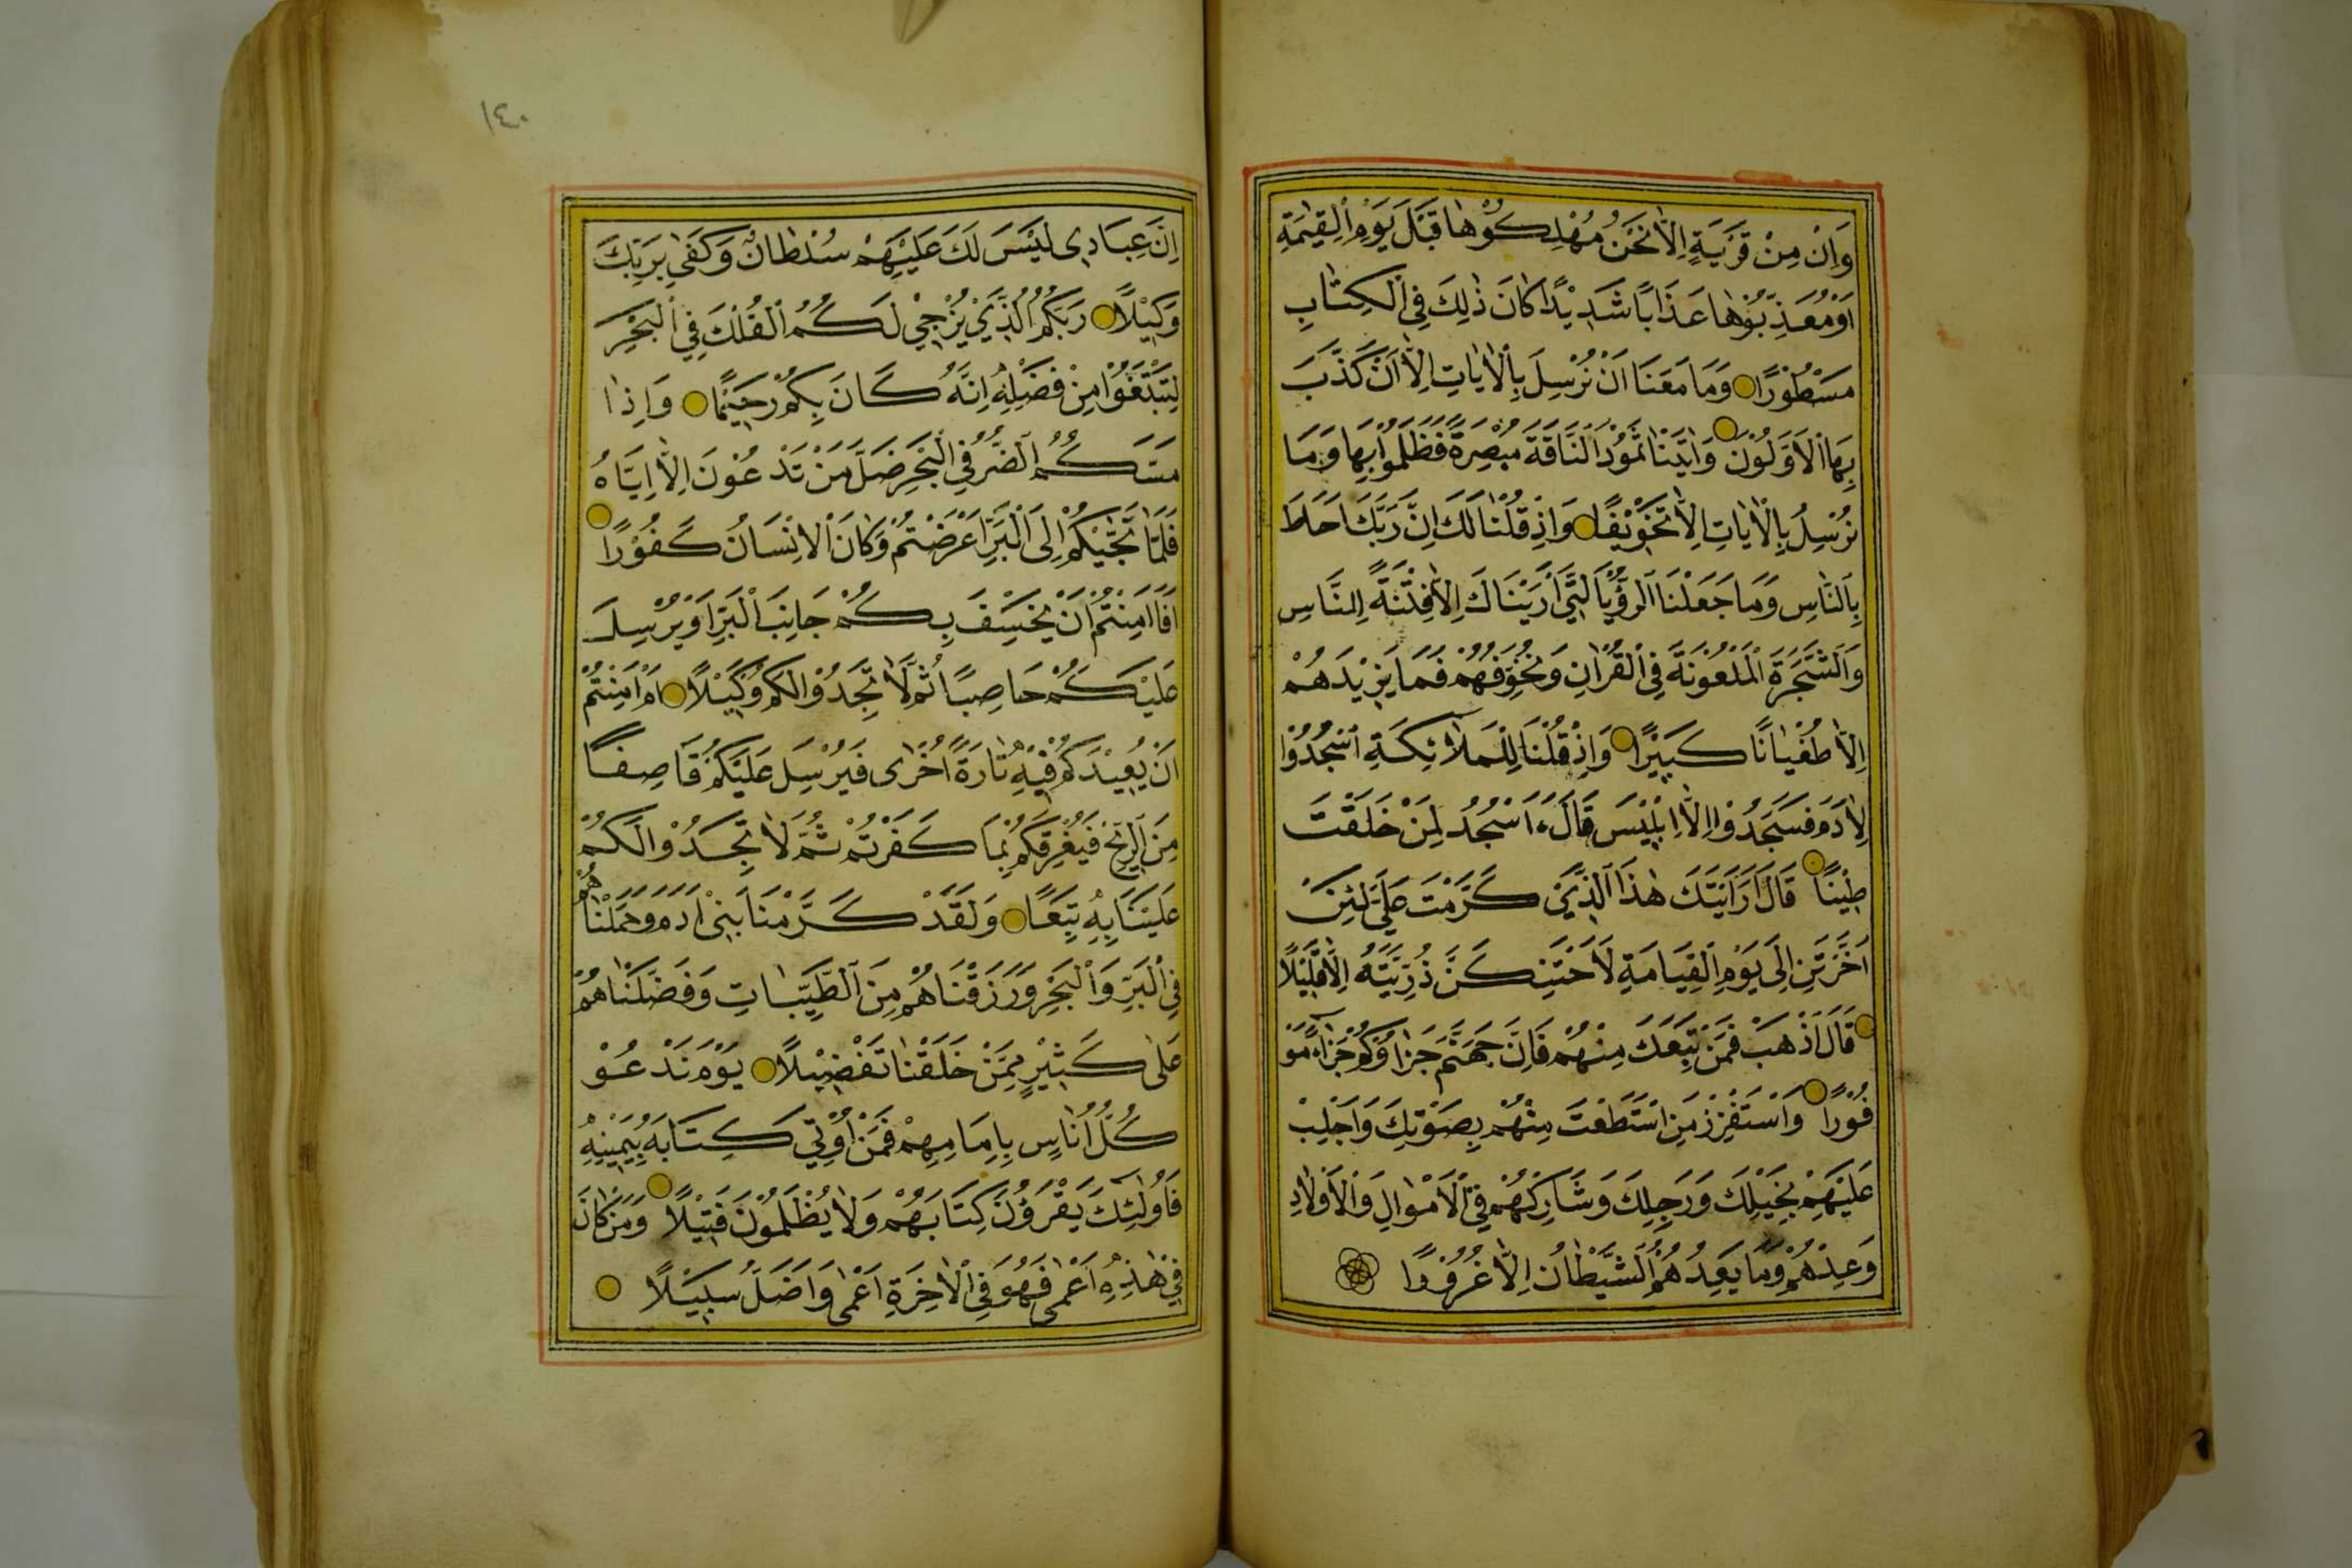 وَاِنْ مِنْ قَرْيَةٍ اِلَّا نَحْنُ مُهْلِكُوْهَا قَبْلَ يَوْمِ الْقِيٰمَةِ
اَوْ مُعَذِّبُوْهَا عَذَابًا شَدِيْدًا كَانَ ذٰلِكَ فِى الْكِتَابِ
مَسْطُوْرًا وَمَا مَنَعَنَا اَنْ نُرْسِلَ بِالْاٰيَاتِ اِلَّا اَنْ كَذَّبَ
بِهَا الْاَوَّلُوْنَ وَاٰتَيْنَا ثَمُوْدَ النَّاقَةَ مُبْصِرَةً فَظَلَمُوْا بِهَا وَمَا
نُرْسِلُ بِالْاٰيَاتِ اِلَّا تَخْوِيْفًا وَاِذْ قُلْنَا لَكَ اِنَّ رَبَّكَ اَحَاطَ
بِالنَّاسِ وَمَا جَعَلْنَا الرُّؤْيَا الَّتِى اَرَيْنَاكَ اِلَّا فِتْنَةً لِلنَّاسِ
وَالشَّجَرَةَ الْمَلْعُوْنَةَ فِى الْقُرْاٰنِ وَنُخَوِّفُهُمْ فَمَا يَزِيْدُهُمْ
اِلَّا طُغْيَانًا كَبِيْرًا وَاِذْ قُلْنَا لِلْمَلٰٓئِكَةِ اسْجُدُوْا
لِاٰدَمَ فَسَجَدُوْا اِلَّا اِبْلِيْسَ قَالَ ءَاَسْجُدُ لِمَنْ خَلَقْتَ
طِيْنًا قَالَ اَرَاَيْتَكَ هٰذَا الَّذِىْ كَرَّمْتَ عَلَىَّ لَئِنْ
اَخَّرْتَنِ اِلٰى يَوْمِ الْقِيَامَةِ لَاَحْتَنِكَنَّ ذُرِّيَّتَهُ اِلَّا قَلِيْلًا
قَالَ اذْهَبْ فَمَنْ تَبِعَكَ مِنْهُمْ فَاِنَّ جَهَنَّمَ جَزَاؤُكُمْ جَزَاءً مَوْ
فُوْرًا وَاسْتَفْزِزْ مَنِ اسْتَطَعْتَ مِنْهُمْ بِصَوْتِكَ وَاَجْلِبْ
عَلَيْهِمْ بِخَيْلِكَ وَرَجِلِكَ وَشَارِكْهُمْ فِى الْاَمْوَالِ وَالْاَوْلَادِ
وَعِدْهُمْ وَمَا يَعِدُهُمُ الشَّيْطَانُ اِلَّا غُرُوْرًا
١٤٠
اِنَّ عِبَادِى لَيْسَ لَكَ عَلَيْهِمْ سُلْطَانٌ وَكَفٰى بِرَبِّكَ
وَكِيْلًا رَبُّكُمُ الَّذِىْ يُزْجِىْ لَكُمُ الْفُلْكَ فِى الْبَحْرِ
لِتَبْتَغُوْا مِنْ فَضْلِهِ اِنَّهُ كَانَ بِكُمْ رَحِيْمًا وَاِذَا
مَسَّكُمُ الضُّرُّ فِى الْبَحْرِ ضَلَّ مَنْ تَدْعُوْنَ اِلَّا اِيَّاهُ
فَلَمَّا نَجّٰيكُمْ اِلَى الْبَرِّ اَعْرَضْتُمْ وَكَانَ الْاِنْسَانُ كَفُوْرًا
اَفَاَمِنْتُمْ اَنْ يَخْسِفَ بِكُمْ جَانِبَ الْبَرِّ اَوْ يُرْسِلَ
عَلَيْكُمْ حَاصِبًا ثُمَّ لَا تَجِدُوْا لَكُمْ وَكِيْلًا اَمْ اَمِنْتُمْ
اَنْ يُعِيْدَكُمْ فِيْهِ تَارَةً اُخْرٰى فَيُرْسِلَ عَلَيْكُمْ قَاصِفًا
مِنَ الرِّيْحِ فَيُغْرِقَكُمْ بِمَا كَفَرْتُمْ ثُمَّ لَا تَجِدُوْا لَكُمْ
عَلَيْنَا بِهِ تَبِيْعًا وَلَقَدْ كَرَّمْنَا بَنِىْ اٰدَمَ وَحَمَلْنَاهُمْ
فِى الْبَرِّ وَالْبَحْرِ وَرَزَقْنَاهُمْ مِنَ الطَّيِّبَاتِ وَفَضَّلْنَاهُمْ
عَلٰى كَثِيْرٍ مِمَّنْ خَلَقْنَا تَفْضِيْلًا يَوْمَ نَدْعُوْ
كُلَّ اُنَاسٍ بِاِمَامِهِمْ فَمَنْ اُوْتِىَ كِتَابَهُ بِيَمِيْنِهِ
فَاُولٰٓئِكَ يَقْرَؤُنَ كِتَابَهُمْ وَلَا يُظْلَمُوْنَ فَتِيْلًا وَمَنْ كَانَ
فِىْ هٰذِهِ اَعْمٰى فَهُوَ فِى الْاٰخِرَةِ اَعْمٰى وَاَضَلُّ سَبِيْلًا